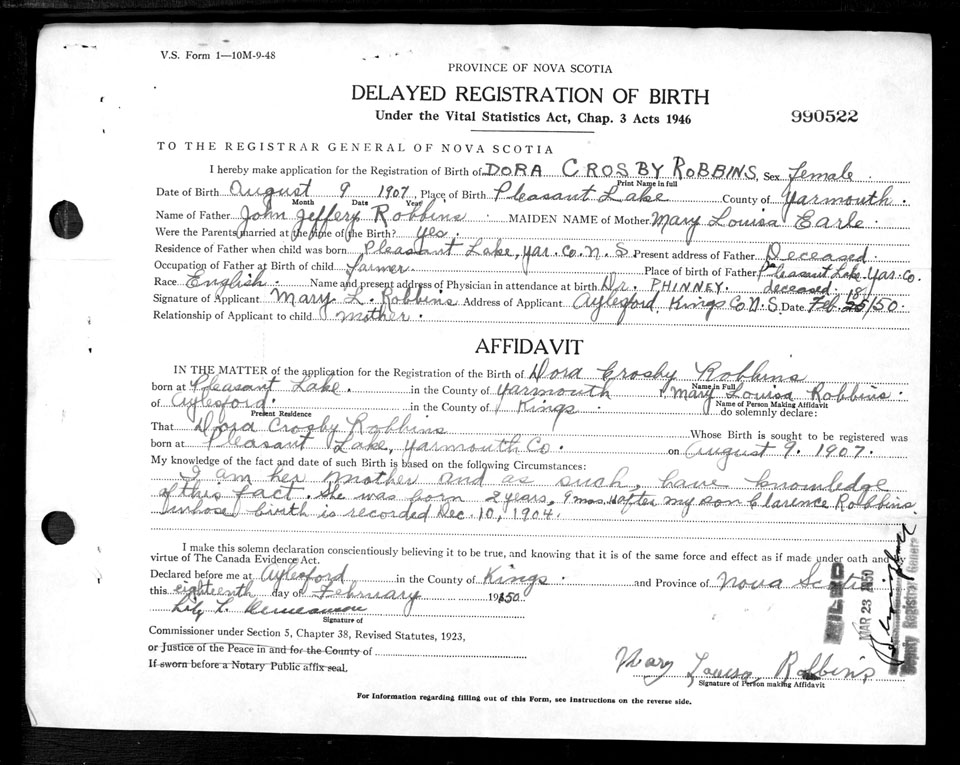 V.S. Form 1—10M-9-48
PROVINCE OF NOVA SCOTIA
DELAYED REGISTRATION OF BIRTH
Under the Vital Statistics Act, Chap. 3 Acts 1946
990522
TO THE REGISTRAR GENERAL OF NOVA SCOTIA
I hereby make application for the Registration of Birth of DORA CROSBY ROBBINS, Sex female
Print Name in full
Date of Birth August 9 1907, Place of Birth Pleasant Lake County of Yarmouth
Month Date Year
Name of Father John Jeffery Robbins MAIDEN NAME of Mother Mary Louisa Earle
Were the Parents married at the time of the Birth? yes
Residence of Father when child was born Pleasant Lake, Yar. Co. N. S Present address of Father Deceased
Occupation of Father at Birth of child farmer Place of Birth of Father Pleasant Lake. Yar. Co.
Race English Name and present address of Physician in attendance at birth Dr. PHINNEY. deceased
Signature of Applicant Mary L. Robbins Address of Applicant Aylesford, Kings Co N.S. Date Feb 18/50
Relationship of Applicant to child mother
AFFIDAVIT
IN THE MATTER of the application for the Registration of the Birth of Dora Crosby Robbins
Name in Full
born at Pleasant Lake. in the County of Yarmouth Mary Louisa Robbins
Name of Person Making Affidavit
of Aylesford in the County of Kings do solemnly declare:
Present Residence
That Dora Crosby Robbins Whose Birth is sought to be registered was
born at Pleasant Lake, Yarmouth Co. on August 9. 1907.
My knowledge of the fact and date of such Birth is based on the following Circumstances:
I am her mother and as such, have knowledge
of this fact. She was born 2 years, 9 mos. after my son Clarence Robbins
whose birth is recorded Dec. 10, 1904.
I make this solemn declaration conscientiously believing it to be true, and knowing that it is of the same force and effect as if made under oath and by
virtue of The Canada Evidence Act.
Declared before me at Aylesford in the County of Kings and Province of Nova Scotia
this eighteenth day of February 1950
Signature of
Commissioner under Section 5, Chapter 38, Revised Statutes, 1923,
or Justice of the Peace in and for the County of
If sworn before a Notary Public affix seal.
Mary Louisa Robbins
Signature of Person making Affidavit
FILED
MAR 23 1950
Deputy Registrar General
For Information regarding filling out of this Form, see Instructions on the reverse side.